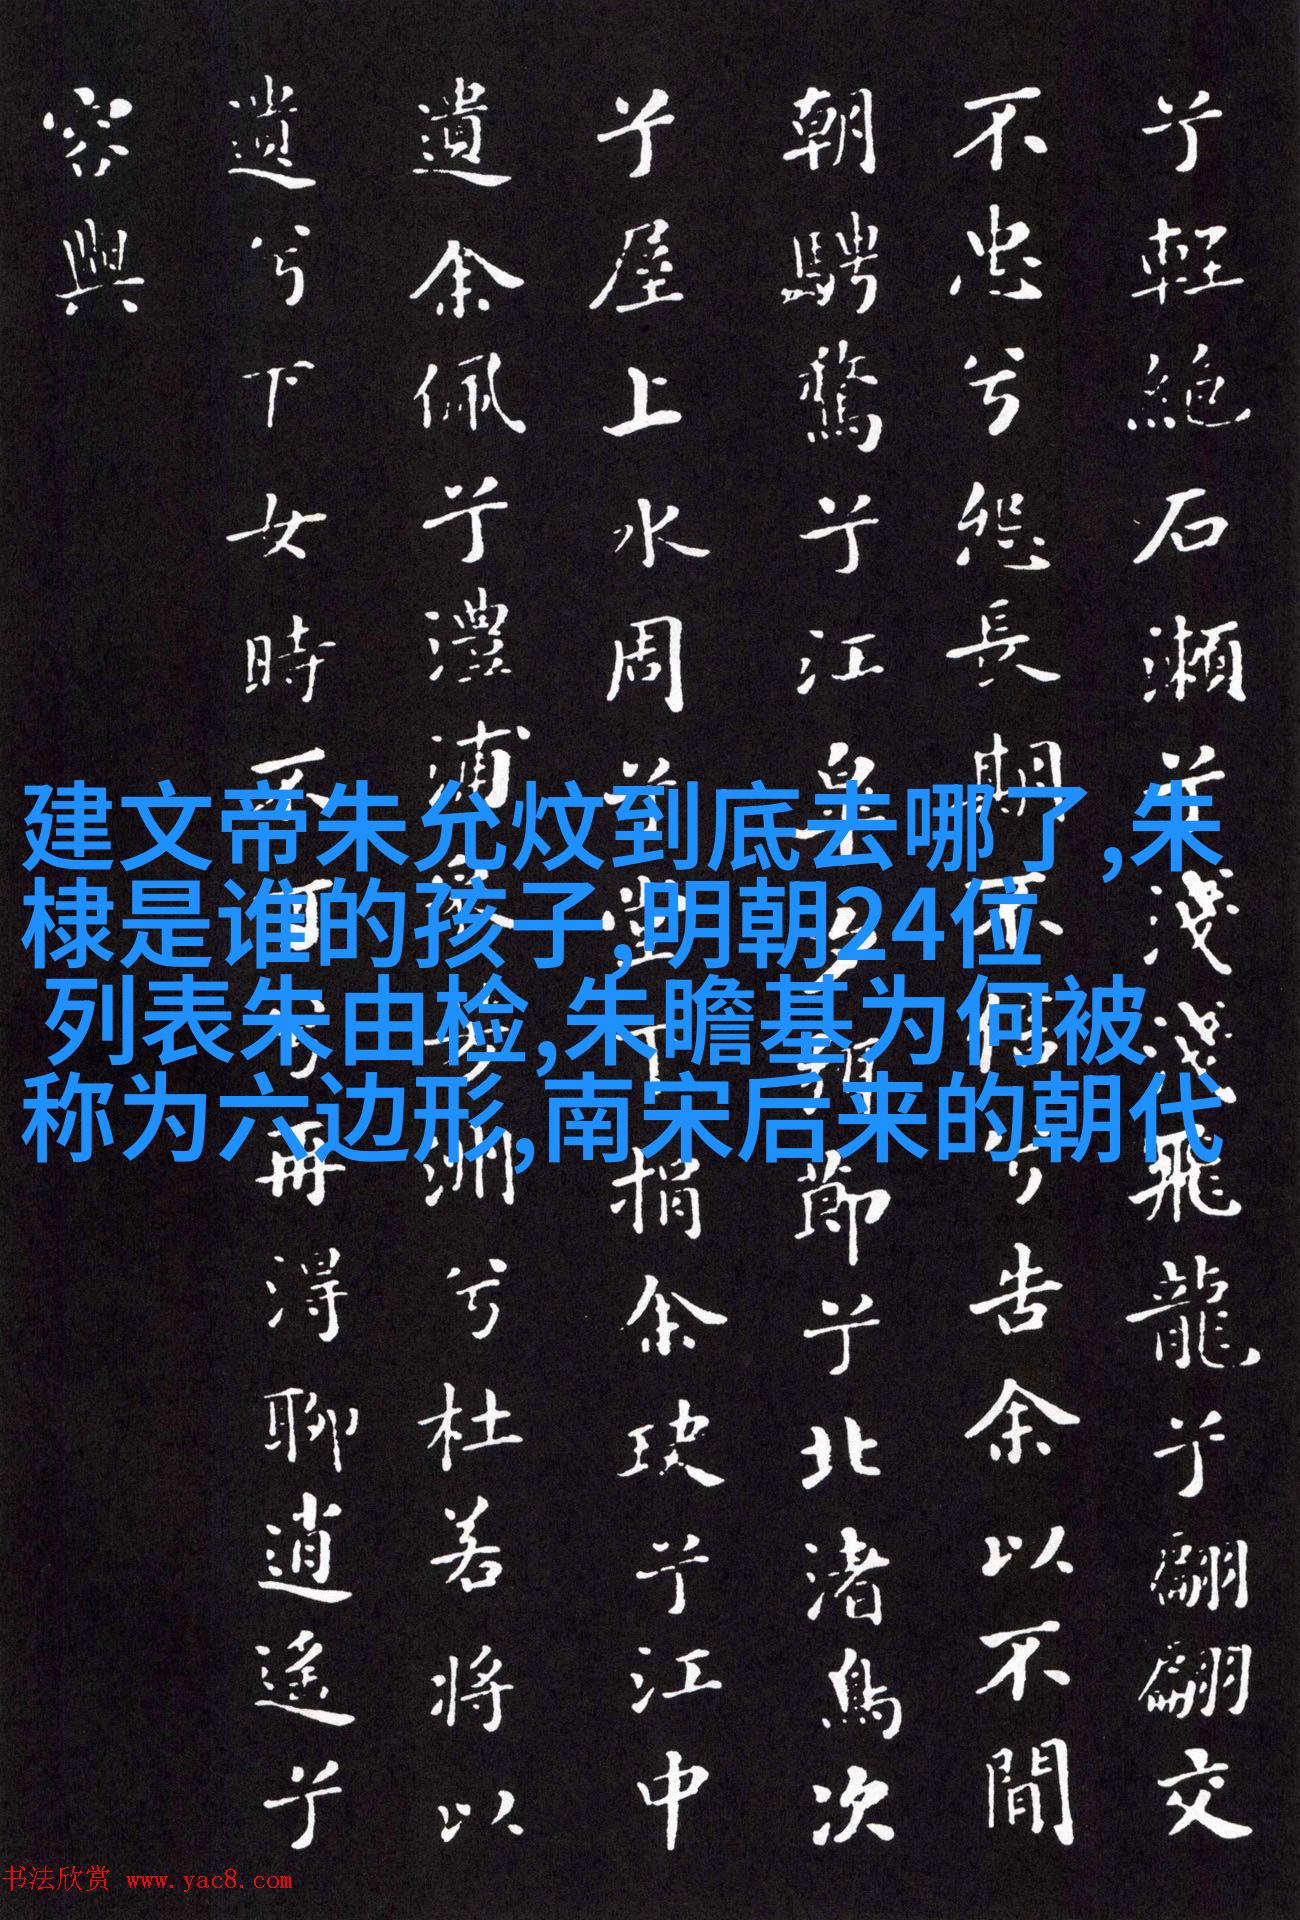 兮輕絕石瀨兮淺淺飛龍兮翩翩交
不忠兮怨長期不信兮告余以不間
朝騁騖兮江皐夕弭節兮北渚鳥次
兮屋上水周兮堂下捐余玦兮江中
遺余佩兮澧浦采芳洲兮杜若將以
遺兮下女時不可兮再得聊逍遙兮
容與
建文帝朱允炆到底去哪了,朱
棣是谁的孩子,明朝24位
列表朱由检,朱瞻基为何被
称为六边形,南宋后来的朝代
书法欣赏 www.yac8.com